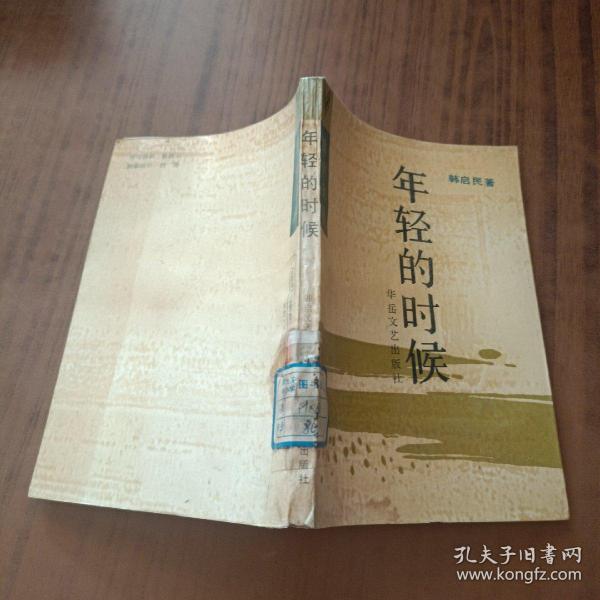 韩启民著
年轻的时候
华岳文艺出版社
年轻的时候
出版社
孔夫子旧书网
www.kongfz.com